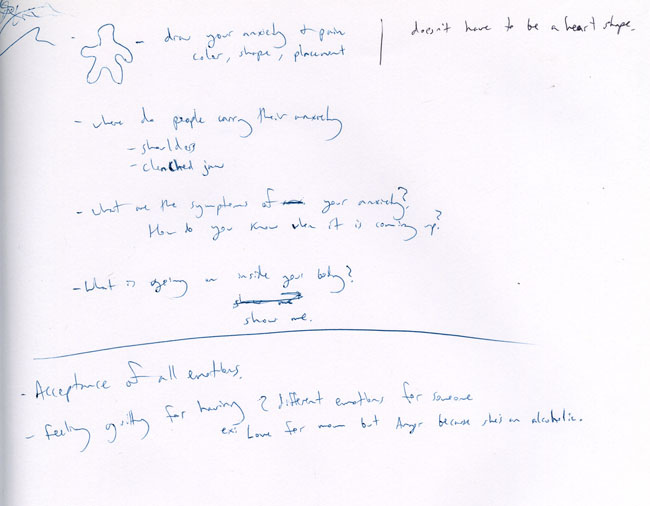 - draw your anxiety & pain
color, shape, placement
doesn't have to be a heart shape.
- where do people carry their anxiety
- shoulders
- clenched jaw
- what are the symptoms of your anxiety?
How do you know when it is coming up?
- What is going on inside your body?
show me
show me.
- Acceptance of all emotions.
- feeling guilty for having 2 different emotions for someone
ex: Love for mom but Angr because she's an alcoholic.